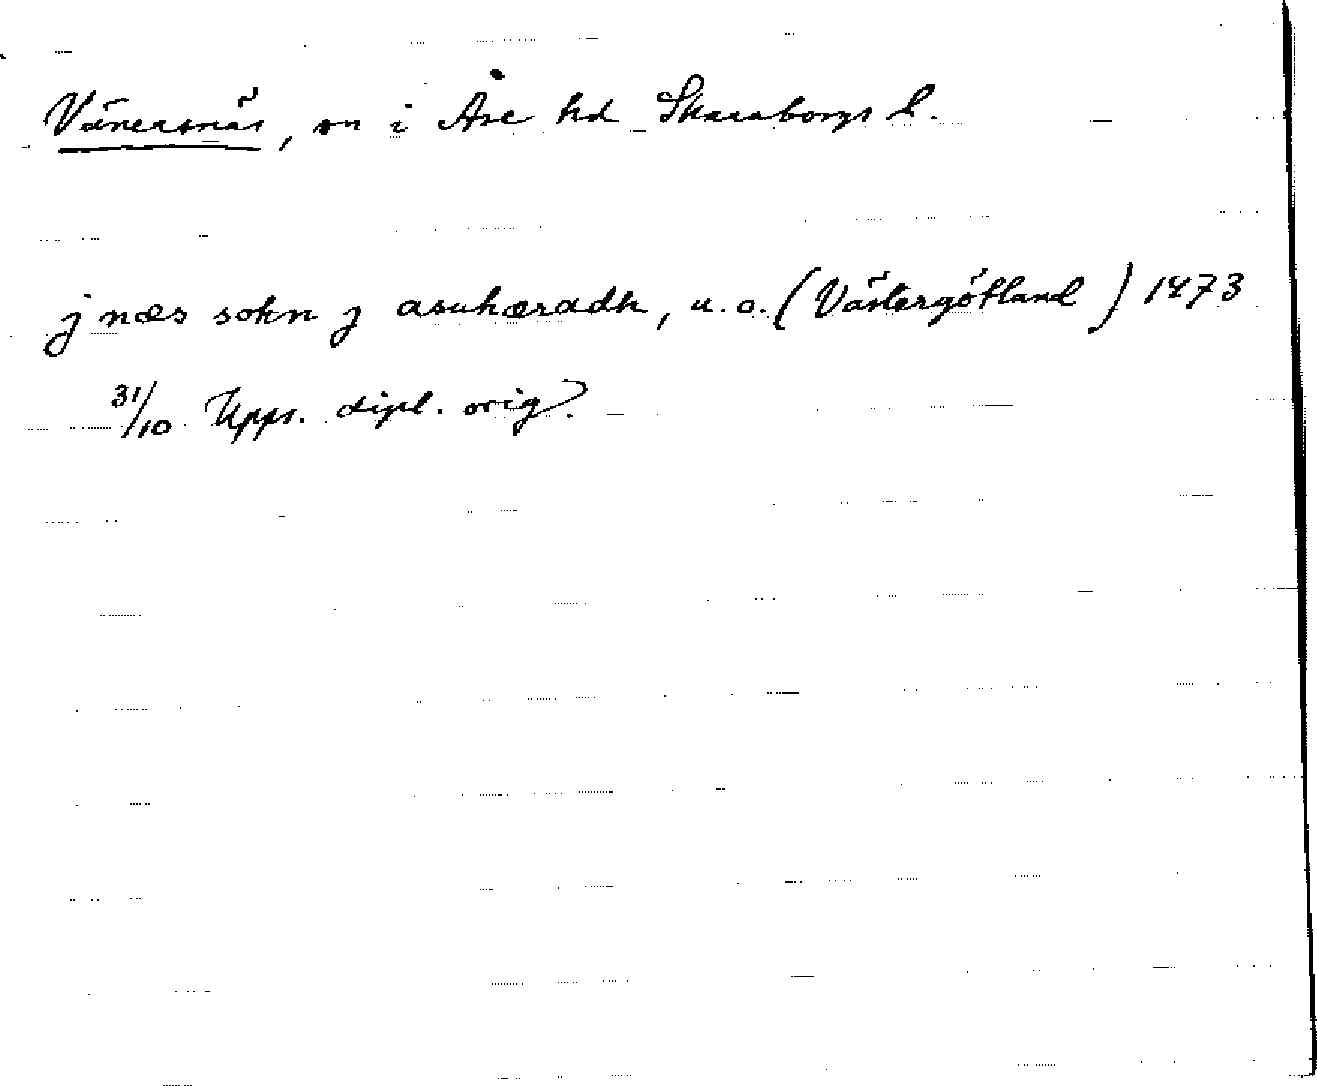 Vänersnäs, sn i Åse hd Skaraborgs l.
j næs sokn j asuhæradh, u.o. (Västergötland) 1473
31/10 Upps. dipl. orig.